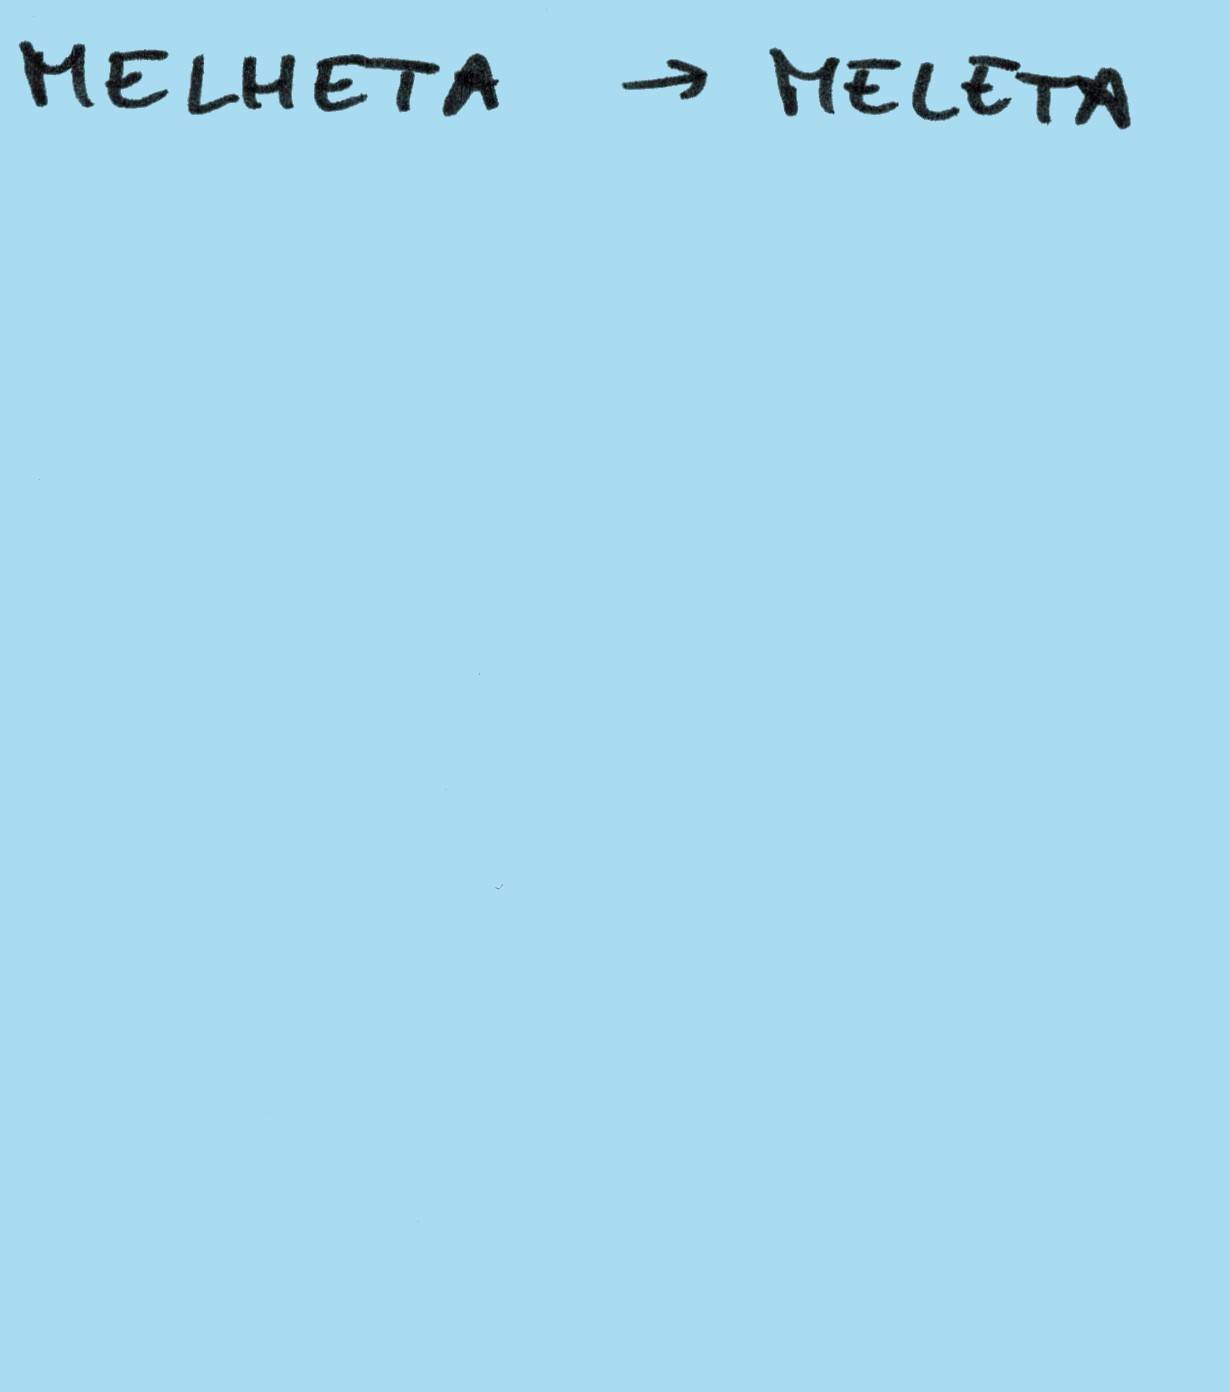 MELHETA → MELETA